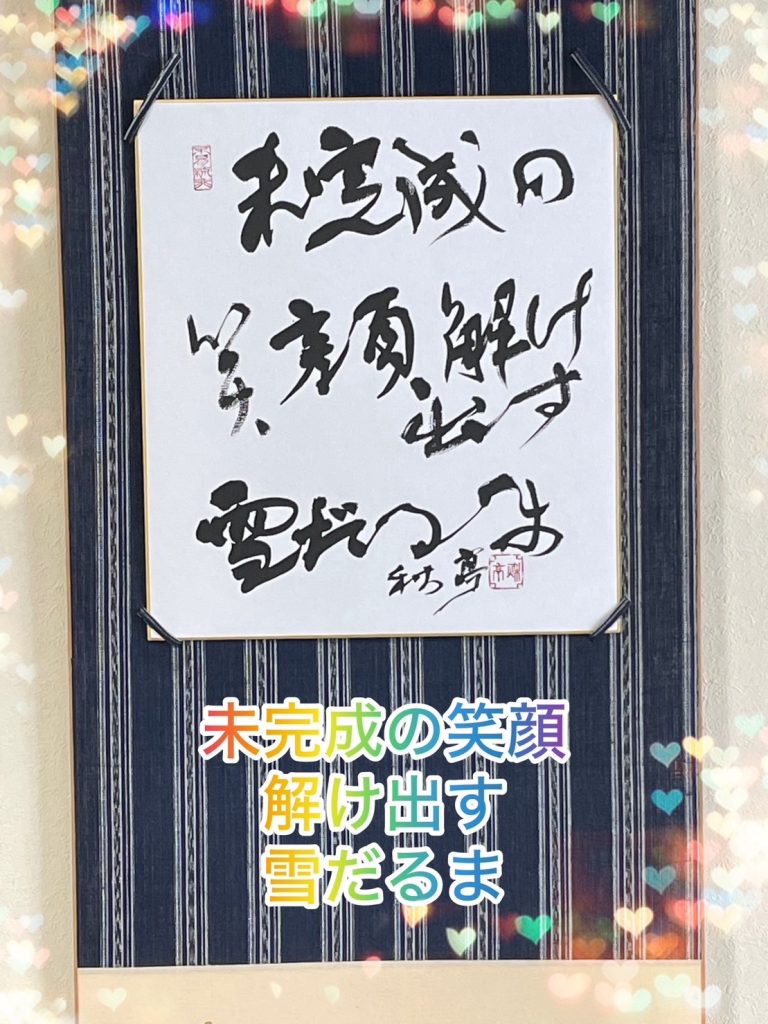 未完成の
笑顔解け
出す
雪だるま
秋亭
未完成の笑顔
解け出す
雪だるま